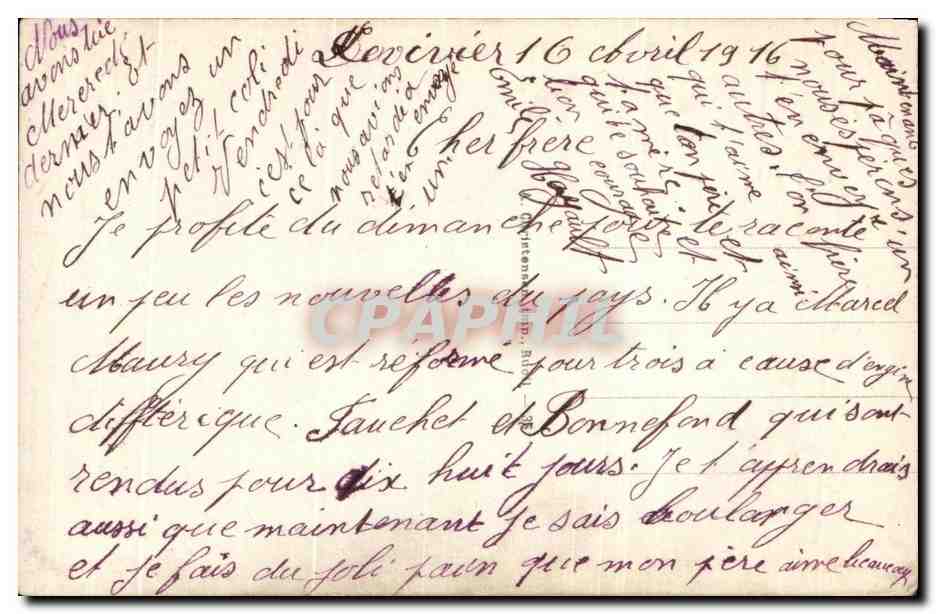 16 Avril 1916
Cher frère
Je profite du dimanche pour te raconté
un peu les nouvelles du pays. Il y a Marcel
Maury qui est réformé pour trois à cause d'engine
difftérique. Fauchet et Bonnefond qui sont
rendus pour dix huit jours. Je t'apprendrais
aussi que maintenant je sais boulanger
et je fais du joli pain que mon père aime beaucoup
Maintenant
pour
nous espérons
t'en envoyé un
autres. Ton frère
qui t'aime ainsi
que ton père et
ta mère et
qui te souhaite
bon courage
Emile
Nous
avons tué
Mercredi
dernier. Et
nous t'avons
envoyez un
petit coli
Vendredi
c'est pour
cela que
nous avions
retardé à
t'en envoyé
un.
CPAPHIL